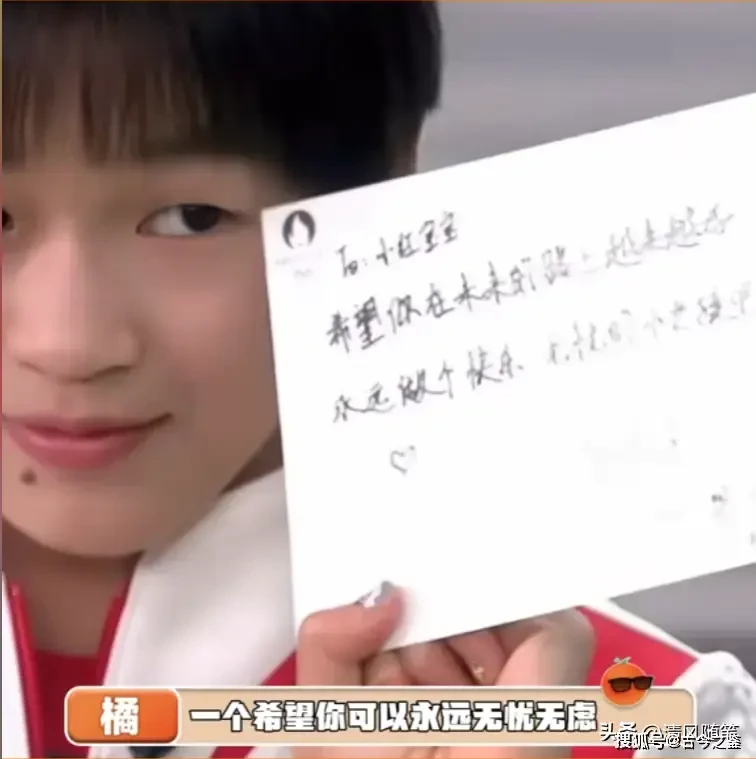 To:小红宝宝
希望你在未来的路上越来越好
永远做个快乐 无忧的小
♡
橘
一个希望你可以永远无忧无虑
头条@清风随笔
搜狐号@古今之鉴